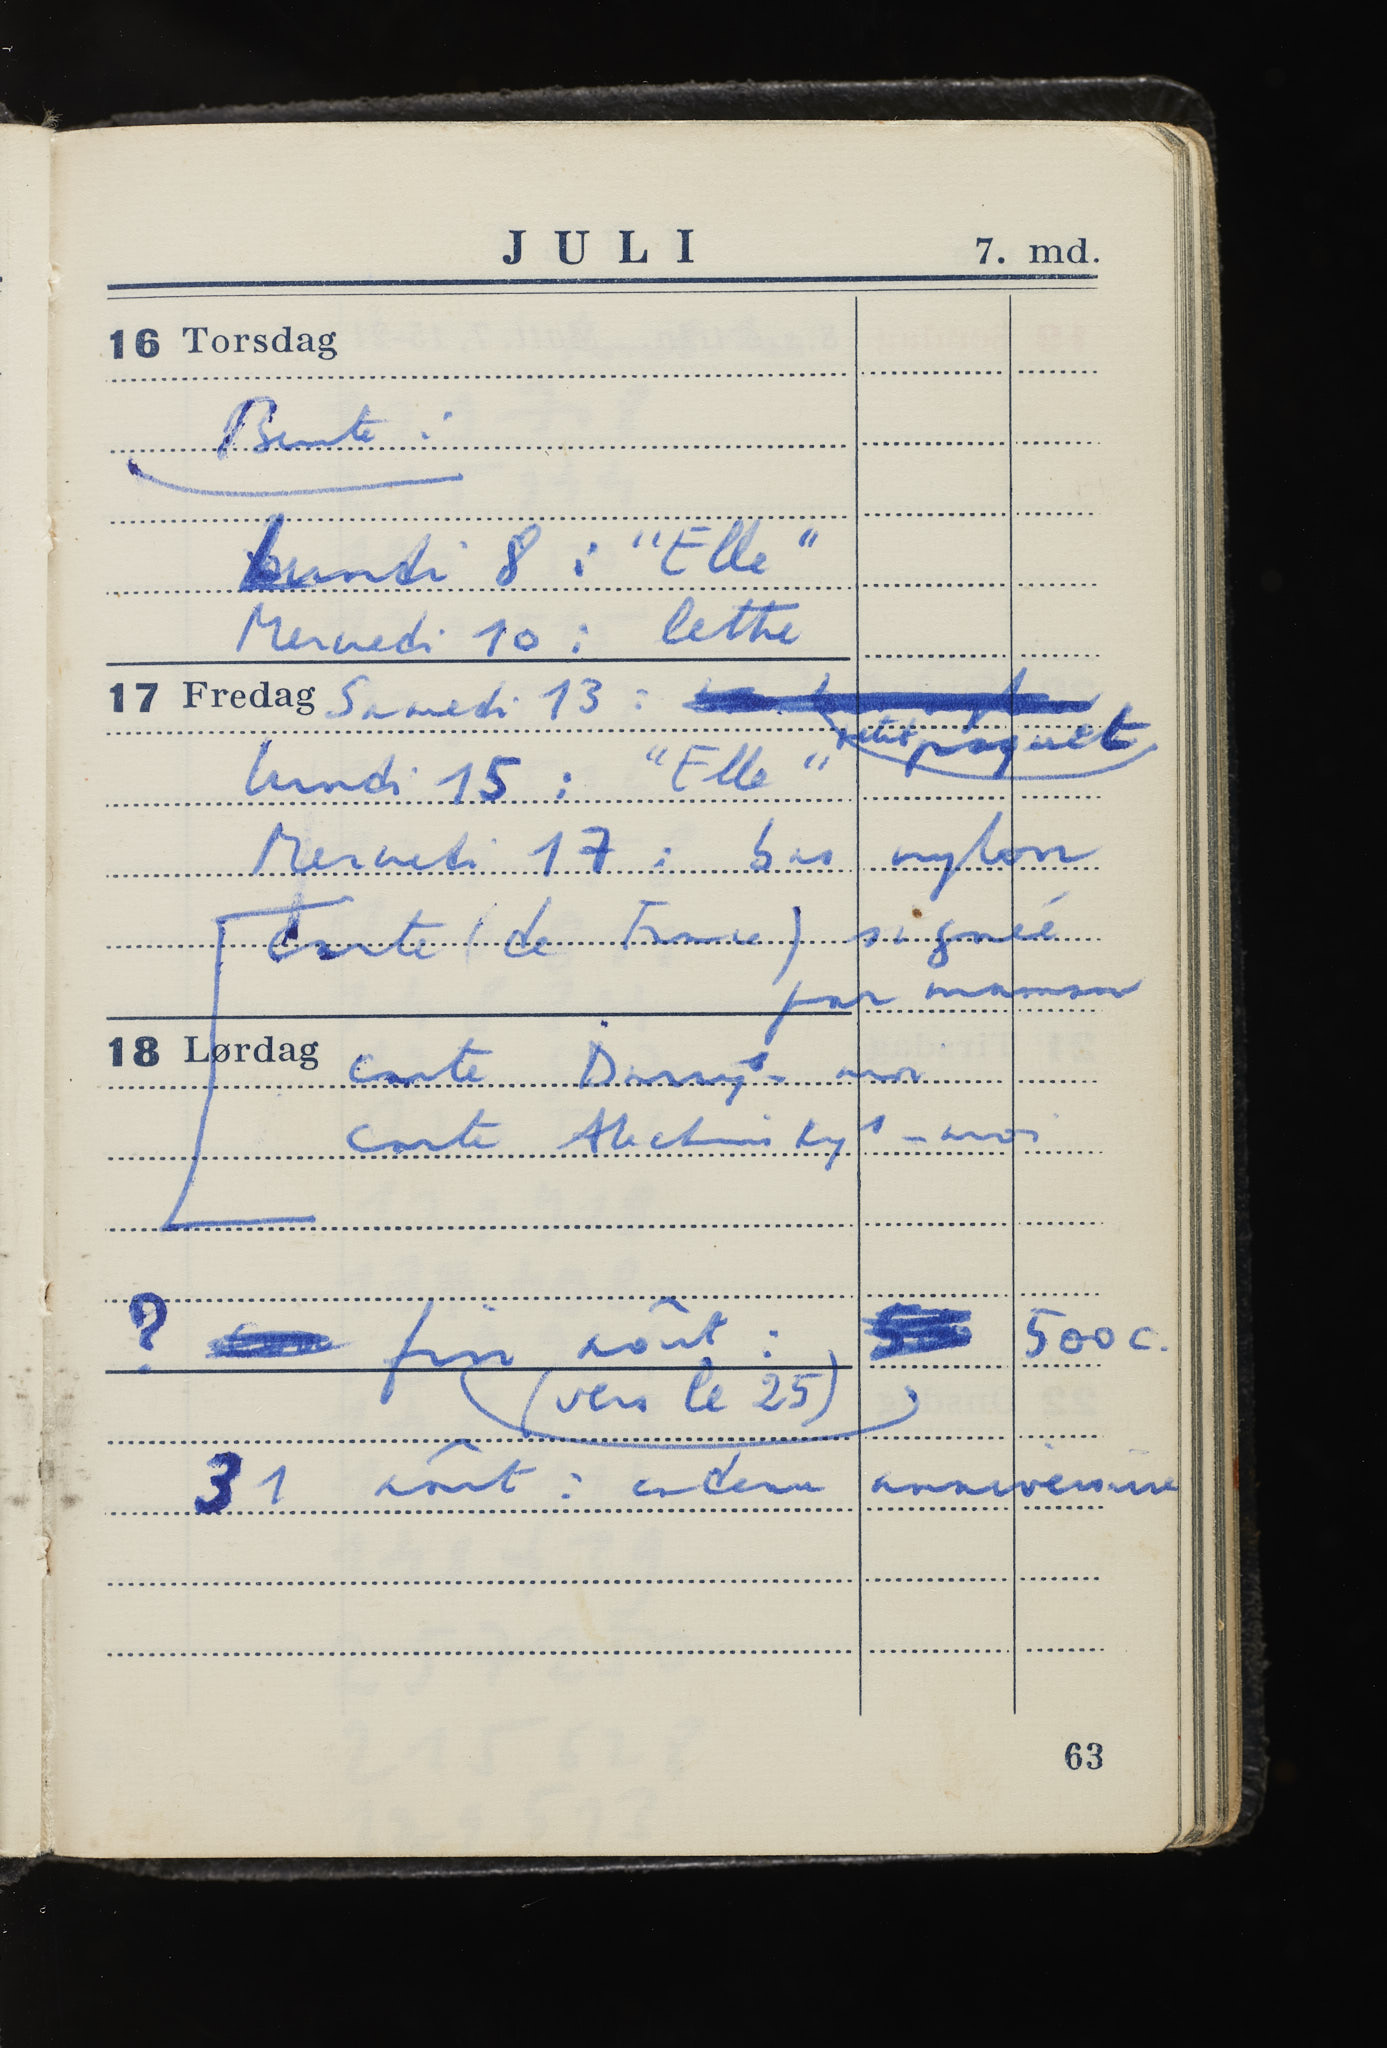 JULI 7. md.
16 Torsdag
Bente :
Lundi 8 : "Elle"
Mercredi 10 : lettre
17 Fredag Samedi 13 :
petit paquet
lundi 15 : "Elle"
Mercredi 17 : bas nylon
Carte (de France) signée
par maman
18 Lørdag carte - moi
carte Alechinsky - moi
? fin août : 500 c.
(vers le 25)
31 août : cadeau anniversaire
63